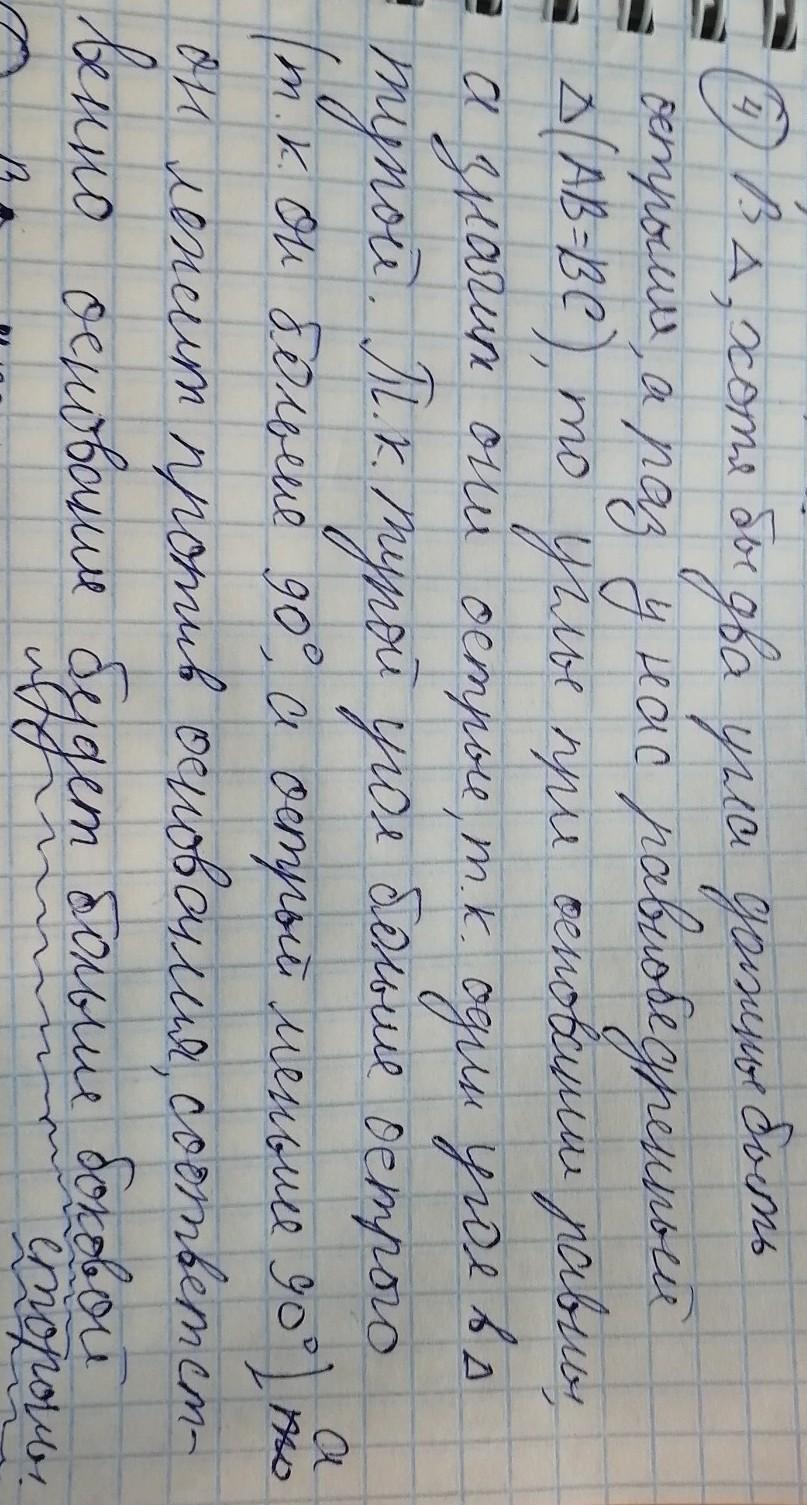 ④ В Δ, хотя бы два угла должны быть
острыми, а раз у нас равнобедренный
Δ (AB=BC), то углы при основании равны,
а значит они острые, т.к. один угол в Δ
тупой. Т.к. тупой угол больше острого
(т.к. он больше 90°, а острый меньше 90°), а
он лежит против основания, соответст-
венно основание будет больше боковой
стороны.